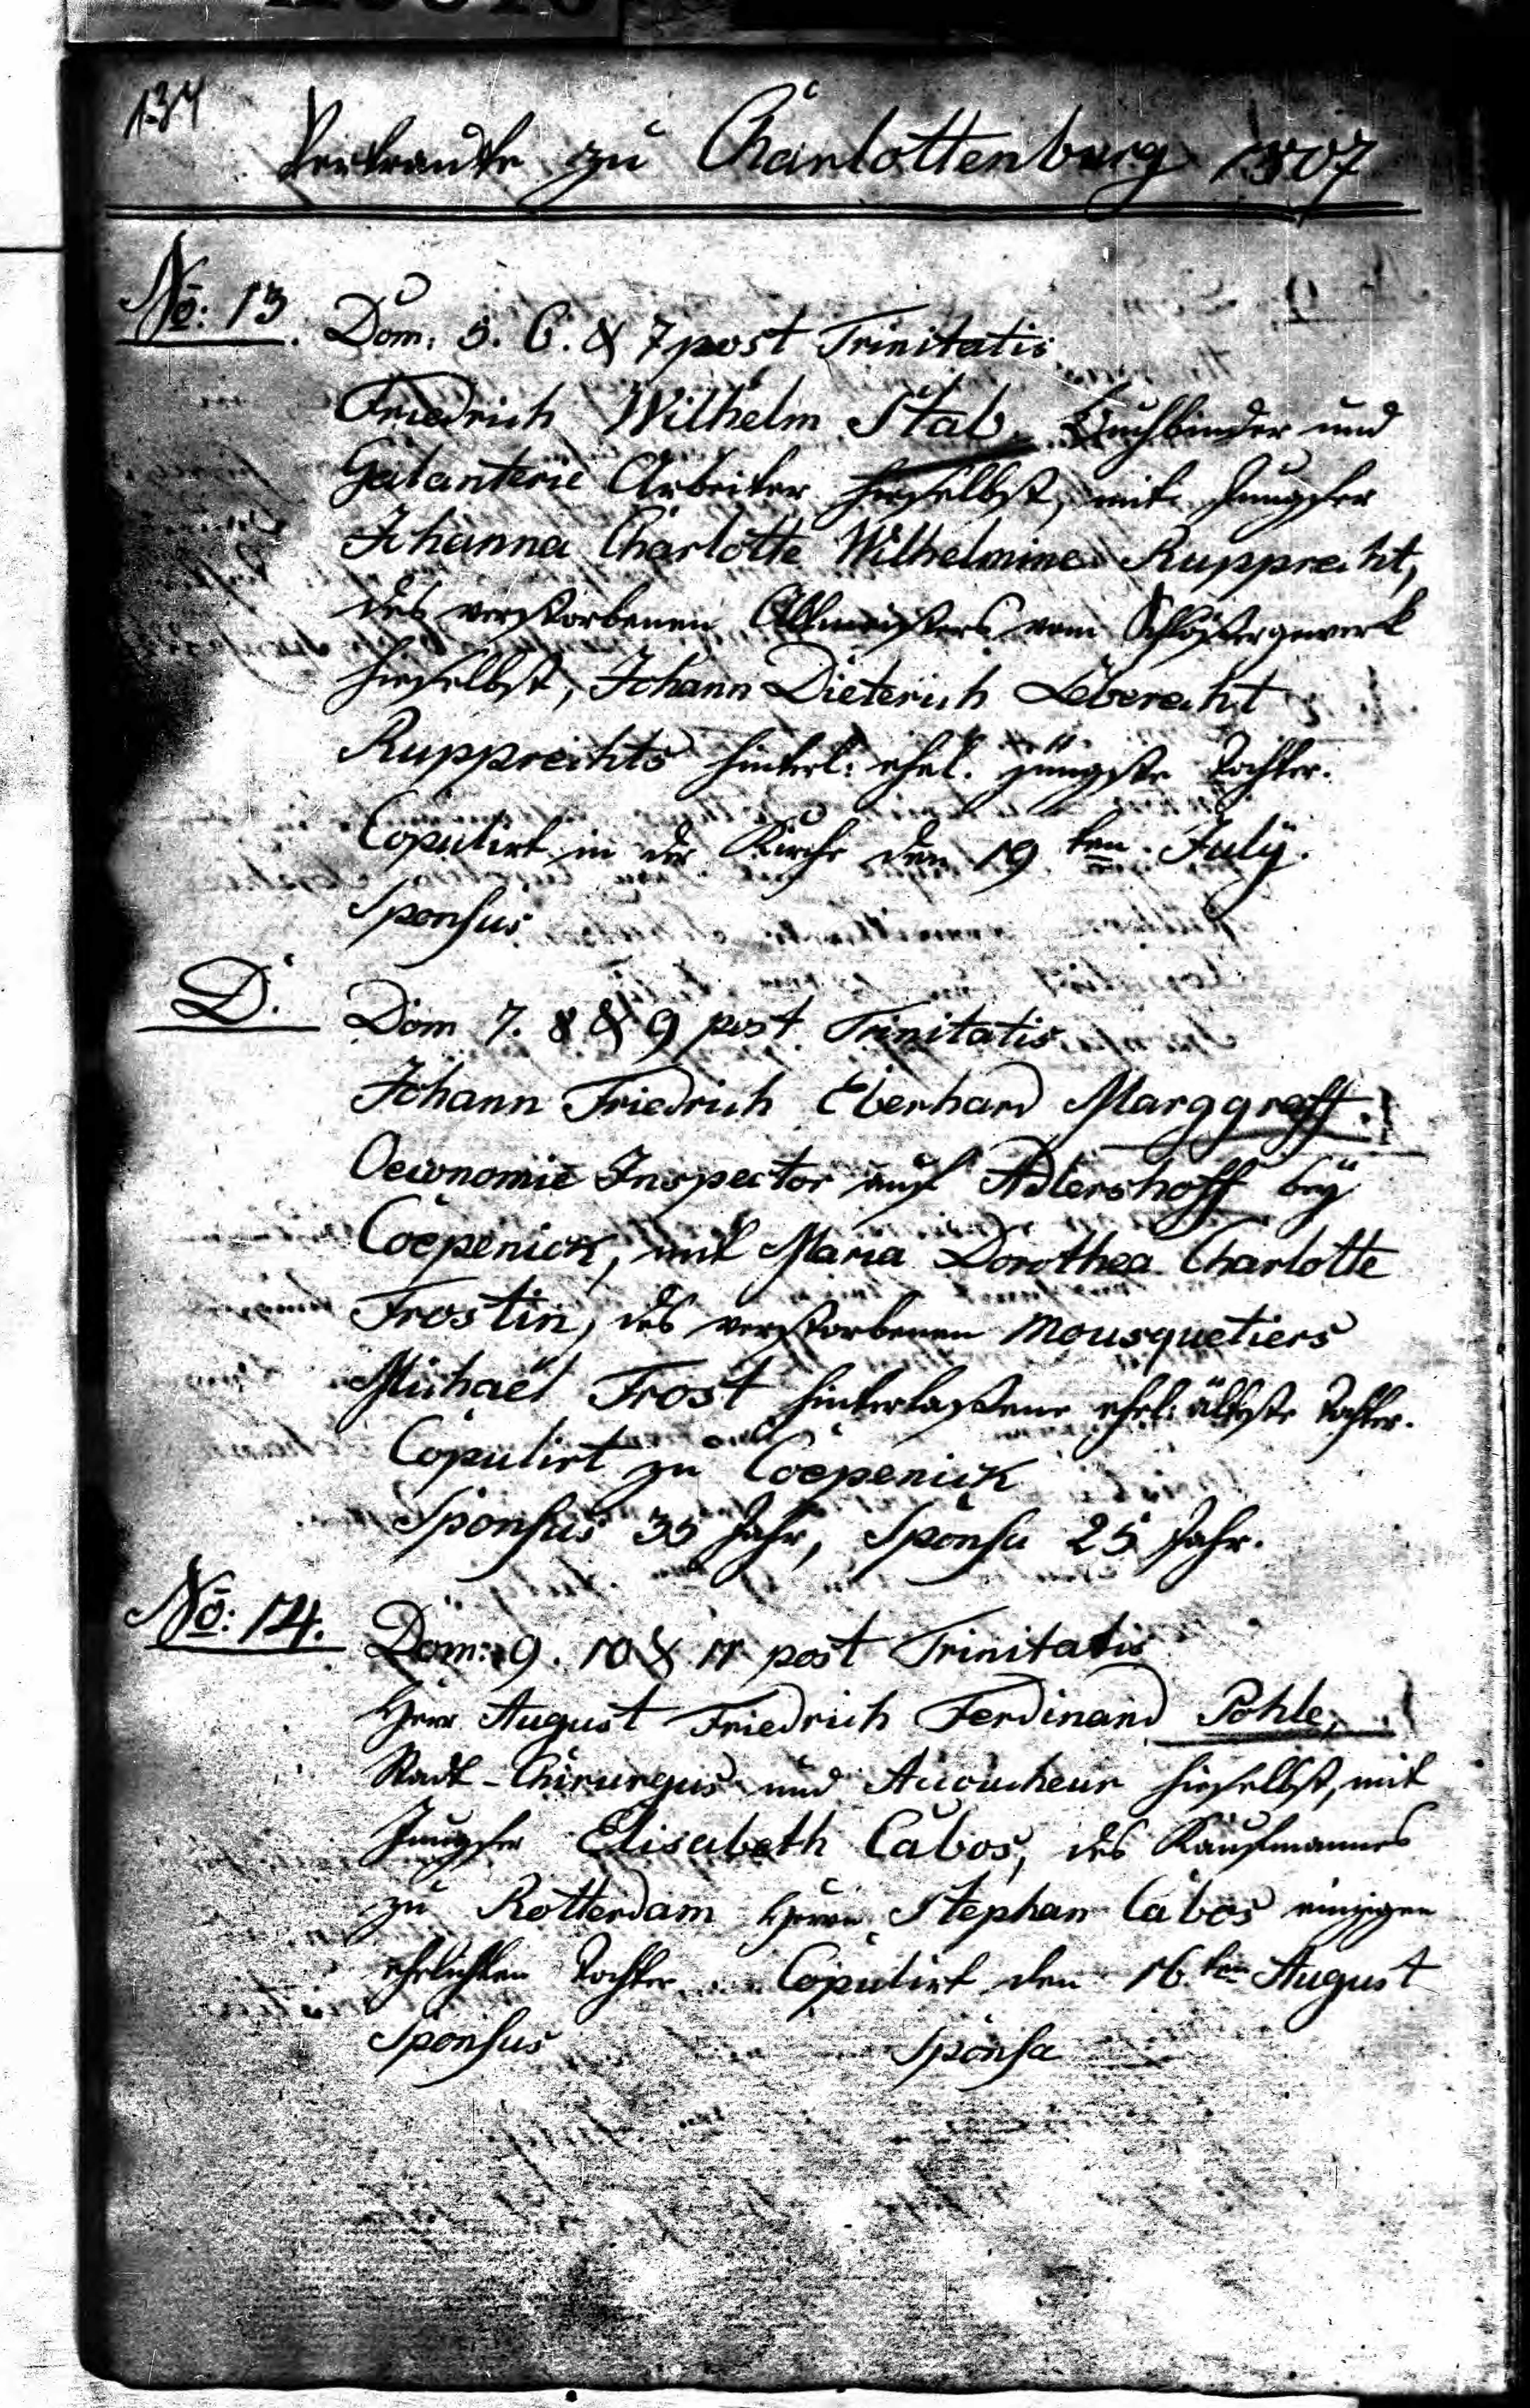 134
Vertraute zu Charlottenburg 1807
No: 13.
Dom. 5. 6. & 7 post Trinitatis
Friedrich Wilhelm Stab, Buchbinder und
Galanterie Arbeiter hieselbst, mit Jungfer
Johanna Charlotte Wilhelmine Rupprecht,
des verstorbenen Altmeisters vom Schlößergewerk
hieselbst, Johann Dieterich Leberecht
Rupprechts hinterl: ehel. jüngste Tochter.
Copulirt in der Kirche den 19ten July.
Sponsus
D.
Dom 7. 8 & 9 post Trinitatis
Johann Friedrich Eberhard Marggraff.
Oeconomie Inspector auf Adlershoff bey
Coepenick, mit Maria Dorothea Charlotte
Frostin, des verstorbenen Mousquetiers
Michael Frost hinterlaßene ehel: älteste Tochter.
Copulirt zu Coepenick
Sponsus 35 Jahr, Sponsa 25 Jahr.
No: 14.
Dom: 9. 10 & 11 post Trinitatis
Herr August Friedrich Ferdinand Pohle,
Stadt-Chirurgus und Accoucheur hieselbst, mit
Jungfer Elisabeth Cabos, des Kaufmannes
zu Rotterdam Herrn Stephan Cabos einzigen
ehelichen Tochter. Copulirt den 16ten August
Sponsus Sponsa